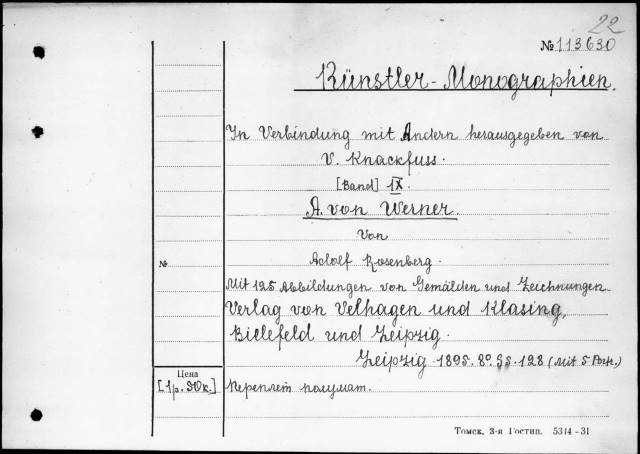 22
№ 113630
Künstler-Monographien.
In Verbindung mit Andern herausgegeben von
V. Knackfuss.
[Band] IX.
A. von Werner.
von
Adolf Rosenberg.
№
Mit 125 Abbildungen von Gemälden und Zeichnungen.
Verlag von Velhagen und Klasing,
Bielefeld und Leipzig.
Leipzig. 1895. 8°. SS. 128 (mit 5 Portr.)
Цена
[1р. 50к.] Переплет полумат.
Томск, 3-я Гостип. 5314-31